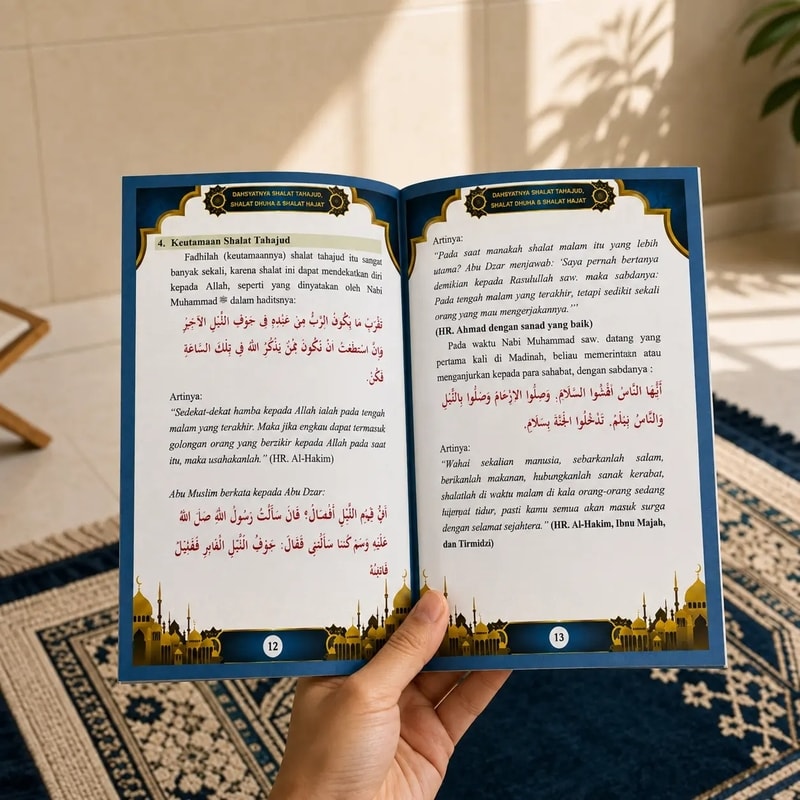 DAHSYATNYA SHALAT TAHAJUD,
SHALAT DHUHA & SHALAT HAJAT
4. Keutamaan Shalat Tahajud
Fadhilah (keutamaannya) shalat tahajud itu sangat
banyak sekali, karena shalat ini dapat mendekatkan diri
kepada Allah, seperti yang dinyatakan oleh Nabi
Muhammad ﷺ dalam haditsnya:
الرَّبُّ فِي جَوْفِ اللَّيْلِ
اللهَ فِي تِلْكَ السَّاعَةِ
Artinya:
“Sedekat-dekat hamba kepada Allah ialah pada tengah
malam yang terakhir. Maka jika engkau dapat termasuk
golongan orang yang berzikir kepada Allah pada saat
itu, maka usahakanlah.” (HR. Al-Hakim)
Abu Muslim berkata kepada Abu Dzar:
اللَّيْلِ رَسُولُ اللهِ اللهُ
عَلَيْهِ فَقَالَ: جَوْفُ
12
DAHSYATNYA SHALAT TAHAJUD,
SHALAT DHUHA & SHALAT HAJAT
Artinya:
“Pada saat manakah shalat malam itu yang lebih
utama? Abu Dzar menjawab: ‘Saya pernah bertanya
demikian kepada Rasulullah saw. maka sabdanya:
Pada tengah malam yang terakhir, tetapi sedikit sekali
orang yang mau mengerjakannya.’”
(HR. Ahmad dengan sanad yang baik)
Pada waktu Nabi Muhammad saw. datang yang
pertama kali di Madinah, beliau memerintakn atau
menganjurkan kepada para sahabat, dengan sabdanya :
أَيُّهَا النَّاسُ أَفْشُوا السَّلَامَ، وَصِلُوا الْأَرْحَامَ وَصَلُّوا بِاللَّيْلِ
وَالنَّاسُ تَدْخُلُوا الْجَنَّةَ بِسَلَامٍ.
Artinya:
“Wahai sekalian manusia, sebarkanlah salam,
berikanlah makanan, hubungkanlah sanak kerabat,
shalatlah di waktu malam di kala orang-orang sedang
tidur, pasti kamu semua akan masuk surga
dengan selamat sejahtera.” (HR. Al-Hakim, Ibnu Majah,
dan Tirmidzi)
13